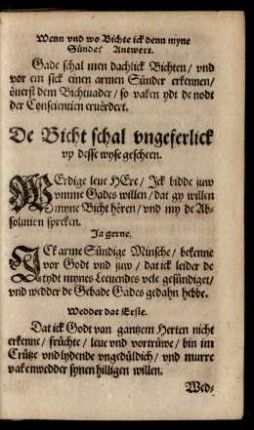 Wenn vnd wo Bichte ick denn myne
Sünde? Antwert.
Gade schal men dachlick Bichten / vnd
vor em sick einen armen Sünder erkennen /
öuerst dem Bichtuader / so vaken ydt de nodt
der Conscientien eruördert.
De Bicht schal vngeferlick
vp desse wyse gescheen.
WErdige leue HEre / Jck bidde juw
vmme Gades willen / dat gy willen
myne Bicht hören / vnd my de Ab-
solution spreken.
Ja gerne.
JCk arme Sündige Minsche / bekenne
vor Godt vnd juw / dat ick leider de
tydt mynes Leeuendes vele gesündiget /
vnd wedder de Gebade Gades gedahn hebbe.
Wedder dat Erste.
Dat ick Godt van gantzem Herten nicht
erkenne / früchte / leue vnd vortrüwe / bin im
Crütze vnd lydende vngedüldich / vnd murre
vaken wedder synen hilligen willen.
Wed-